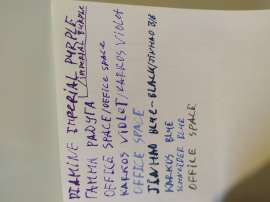 DIAMINE IMPERIAL PURPLE
/IMPERIAL PURPLE
ГАММА РАДУГА
OFFICE SPACE/OFFICE SPACE
KARKOS VIOLET/KARKOS VIOLET
OFFICE SPACE
JINHAO BLUE-BLACK/JINHAO
KARKOS BLUE
SCHNEIDER BLUE
OFFICE SPACE